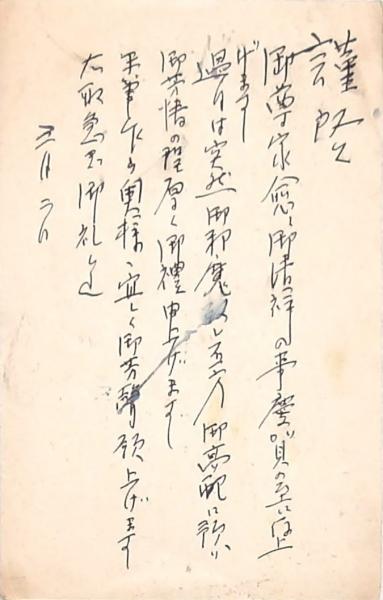 謹啓
御尊家愈々御清祥の事慶賀の至に存上
げます
過日は突然御邪魔し 御高配に預り
御芳情の程厚く御禮申上げます
末筆乍ら奥様へ宜しく御芳聲願上げます
右取急ぎ御礼迄
三月二日